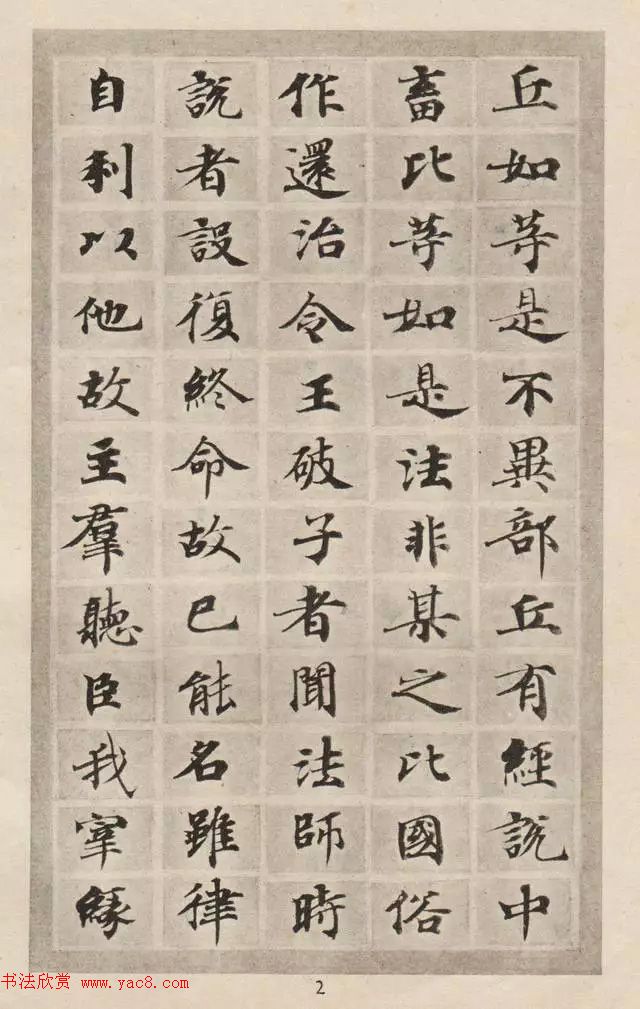 丘如等是不異部丘有經說中
畜比等如是法非某之比國俗
作還治令王破子者聞法師時
說者設復終命故已能名雖律
自利以他故主羣聽臣我寧緣
书法欣赏 www.yac8.com
2